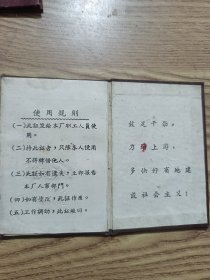 使用规则
(一)此证发给本厂职工人员使
用。
(二)持此证者，只限本人使用
不得转借他人。
(三)此证如有遗失，立即报告
本厂人事部门。
(四)如有涂改，此证作废。
(五)工作调动，此证缴回。
鼓足干劲，
力争上游，
多快好省地建
设社会主义！